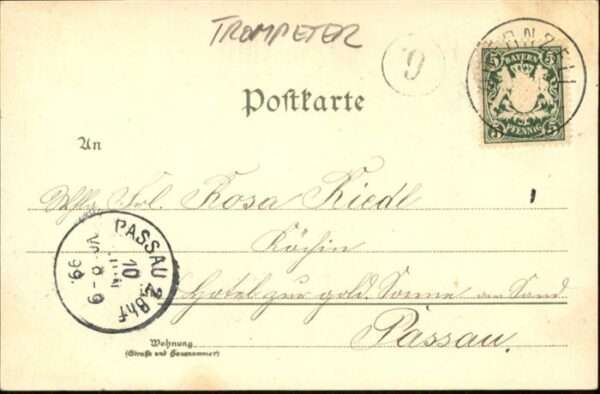 TROMPETER
9
5 BAYERN 5
5 PFENNIG 5
Postkarte
An
Frl. Rosa Riedl
Köchin
Hotel zur gold. Sonne am Sand
Passau.
PASSAU 2 Bhf
10
99.
Wohnung
(Straße und Hausnummer)